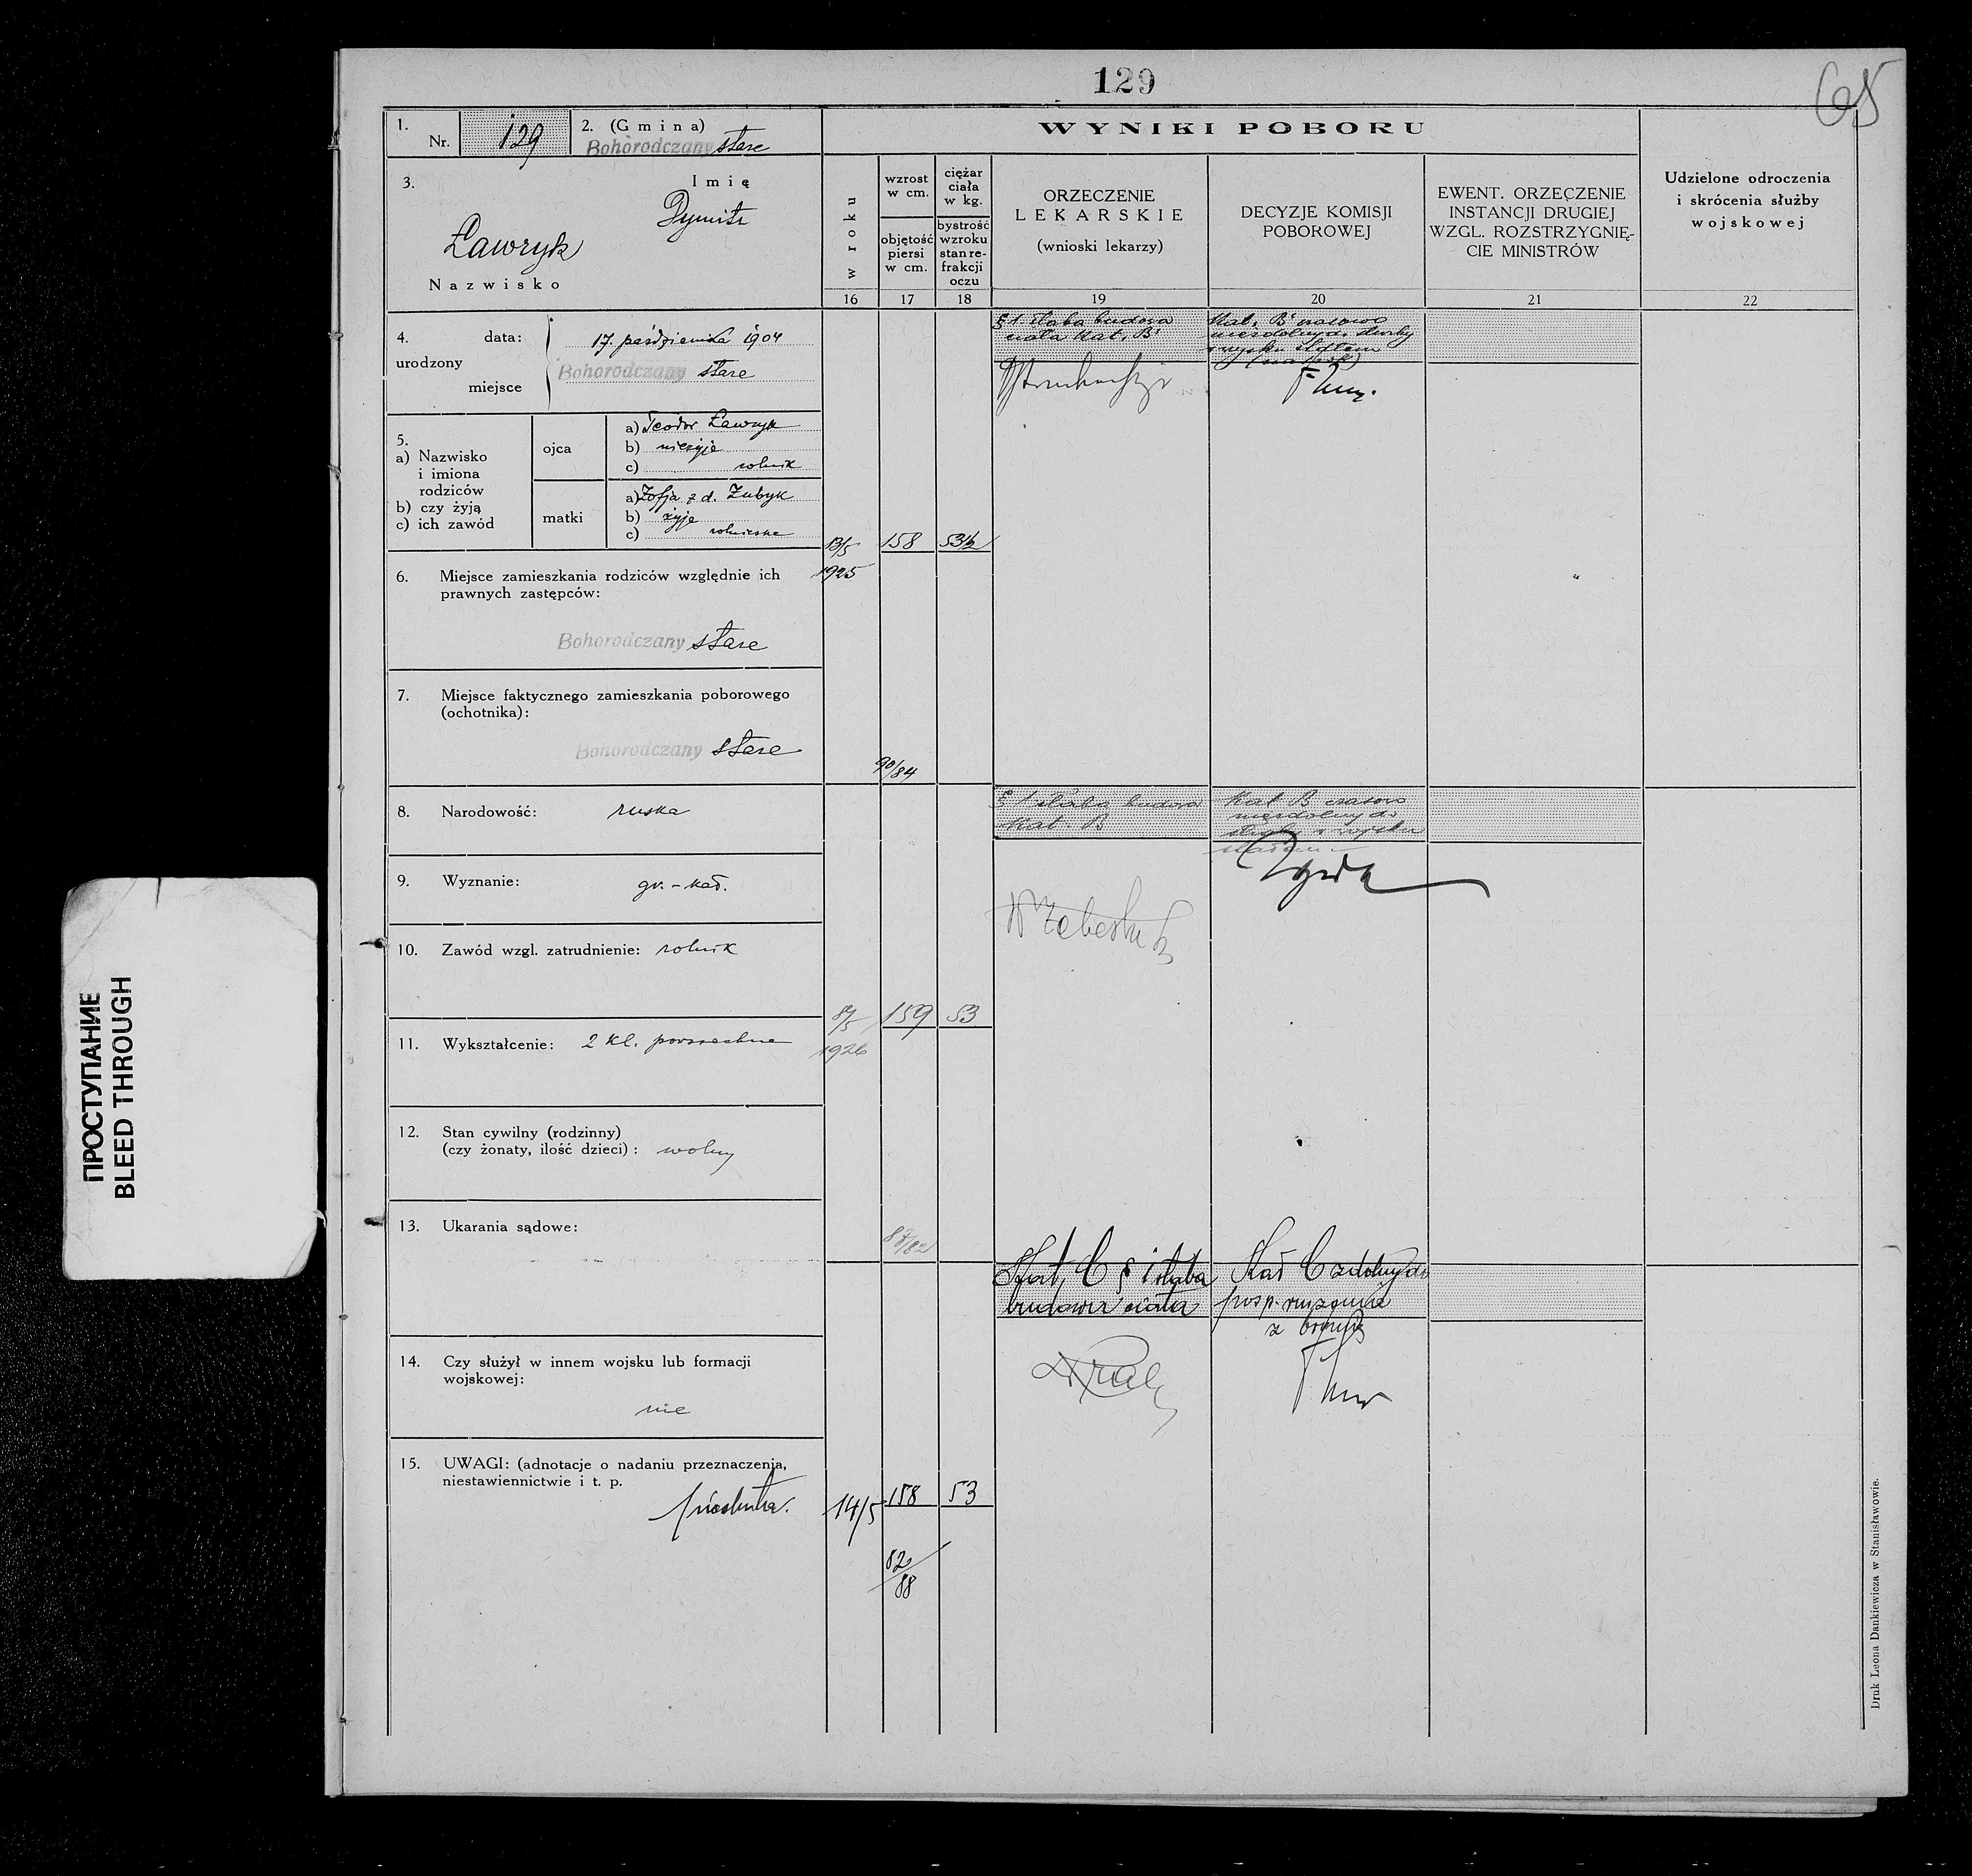 129
65
1. Nr. 129
2. (Gmina)
Bohorodczany stare
3. Imię
Dymitr
Ławryk
Nazwisko
4. urodzony
data: 17. października 1904
miejsce Bohorodczany stare
5.
a) Nazwisko i imiona rodziców
b) czy żyją
c) ich zawód
ojca
a) Teodor Ławryk
b) nieżyje
c) rolnik
matki
a) Zofja z d. Zubyk
b) żyje
c)
6. Miejsce zamieszkania rodziców względnie ich
prawnych zastępców:
Bohorodczany stare
7. Miejsce faktycznego zamieszkania poborowego
(ochotnika):
Bohorodczany stare
8. Narodowość: ruska
9. Wyznanie: gr.-kat.
10. Zawód wzgl. zatrudnienie: rolnik
11. Wykształcenie: 2 kl. powszechne
12. Stan cywilny (rodzinny)
(czy żonaty, ilość dzieci): wolny
13. Ukarania sądowe:
14. Czy służył w innem wojsku lub formacji
wojskowej:
nie
15. UWAGI: (adnotacje o nadaniu przeznaczenia,
niestawiennictwie i t. p.
piechota.
WYNIKI POBORU
w roku
16
wzrost
w cm.
objętość
piersi
w cm.
17
ciężar
ciała
w kg.
bystrość
wzroku
stan re-
frakcji
oczu
18
ORZECZENIE
LEKARSKIE
(wnioski lekarzy)
19
DECYZJE KOMISJI
POBOROWEJ
20
EWENT. ORZECZENIE
INSTANCJI DRUGIEJ
WZGL. ROZSTRZYGNIĘ-
CIE MINISTRÓW
21
Udzielone odroczenia
i skrócenia służby
wojskowej
22
§ 1 słaba budowa
ciała Kat. B
Kat. B czasowo
niezdolny do służby
w wojsku stałem
13/5 158 53½
1925
90/84
§ 1 słaba budowa
Kat. B
Kat B czasowo
niezdolny do
służby w wojsku
stałem
159 53
1926
Kat. C § 1 słaba
budowa ciała
Kat C zdolny do
posp. ruszenia
z bronią
14/5 158 53
82/88
Druk Leona Dankiewicza w Stanisławowie.
ПРОСТУПАНИЕ
BLEED THROUGH